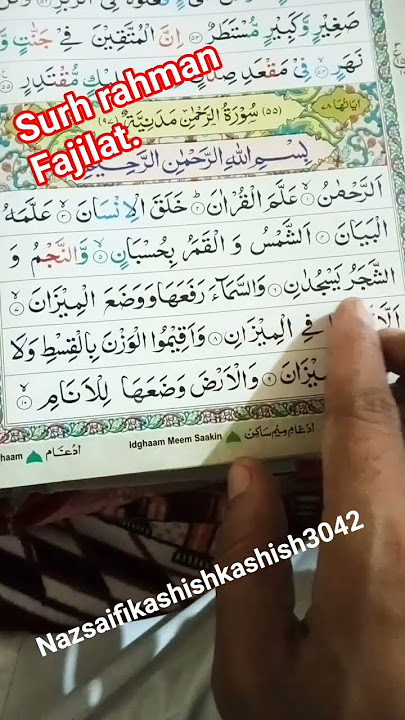 صَغِيْرٍ وَّكَبِيْرٍ مُّسْتَطَرٌ ۝۵۳ اِنَّ الْمُتَّقِيْنَ فِيْ جَنّٰتٍ وَّ
نَهَرٍ ۝۵۴ فِيْ مَقْعَدِ مُّقْتَدِرٍ ۝۵۵
Surh rahman
Fajilat.
اٰيَاتُهَا ٧٨ (۵۵) سُوْرَةُ الرَّحْمٰنِ مَدَنِيَّةٌ (٩٧)
بِسْمِ اللّٰهِ الرَّحْمٰنِ الرَّحِيْمِ
اَلرَّحْمٰنُ ۝۱ عَلَّمَ الْقُرْاٰنَ ۝۲ خَلَقَ الْاِنْسَانَ ۝۳ عَلَّمَهُ
الْبَيَانَ ۝۴ اَلشَّمْسُ وَ الْقَمَرُ بِحُسْبَانٍ ۝۵ وَّالنَّجْمُ وَ
الشَّجَرُ يَسْجُدٰنِ ۝۶ وَالسَّمَآءَ رَفَعَهَا وَوَضَعَ الْمِيْزَانَ ۝۷
فِي الْمِيْزَانِ ۝۸ وَاَقِيْمُوا الْوَزْنَ بِالْقِسْطِ وَلَا
الْمِيْزَانَ ۝۹ وَالْاَرْضَ وَضَعَهَا لِلْاَنَامِ ۝۱۰
ادغام Idghaam Meem Saakin ادغام میم ساکن
Nazsaifikashishkashish3042